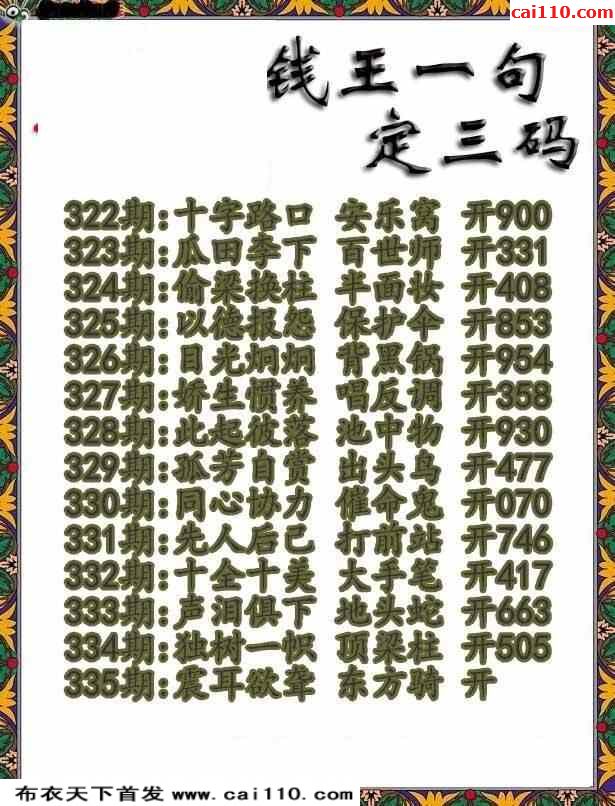 cai110.com
钱王一句
定三码
322期:十字路口 安乐窝 开900
323期:瓜田李下 百世师 开331
324期:偷梁换柱 半面妆 开408
325期:以德报怨 保护伞 开853
326期:目光炯炯 背黑锅 开954
327期:娇生惯养 唱反调 开358
328期:此起彼落 池中物 开930
329期:孤芳自赏 出头鸟 开477
330期:同心协力 催命鬼 开070
331期:先人后己 打前站 开746
332期:十全十美 大手笔 开417
333期:声泪俱下 地头蛇 开663
334期:独树一帜 顶梁柱 开505
335期:震耳欲聋 东方骑 开
布衣天下首发 www.cai110.com